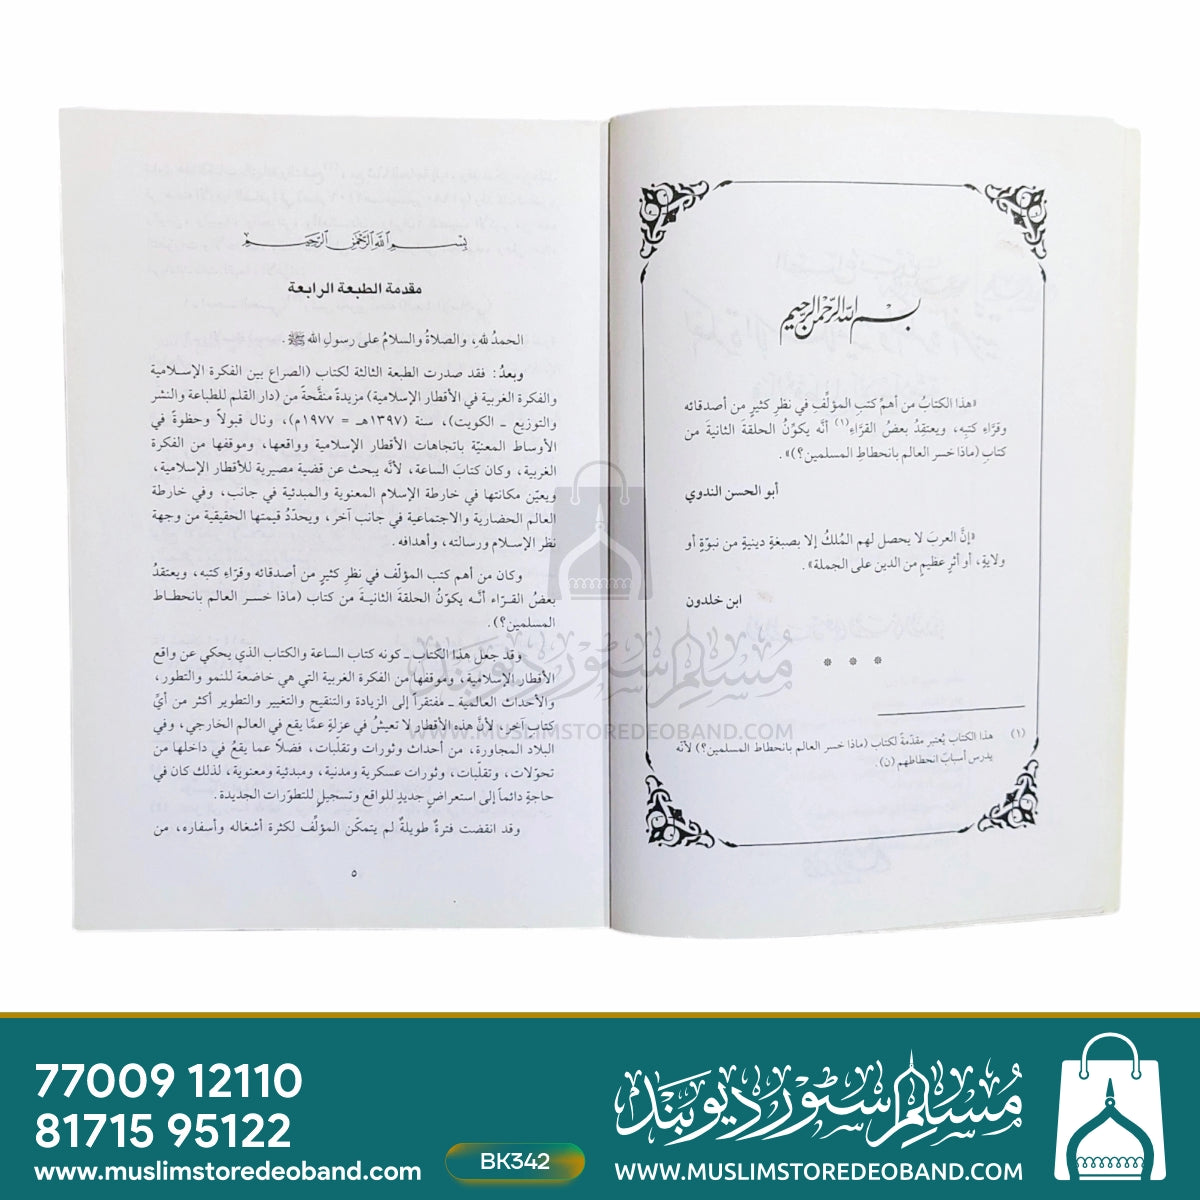 بسم الله الرحمن الرحيم
«هذا الكتابُ من أهمِّ كتبِ المؤلِّفِ في نظرِ كثيرٍ من أصدقائه
وقرَّاءِ كتبِه، ويعتقِدُ بعضُ القراءِ(١) أنَّه يكوِّنُ الحلقةَ الثانيةَ من
كتابِ (ماذا خسر العالم بانحطاطِ المسلمين؟)».
أبو الحسن الندوي
«إنَّ العربَ لا يحصل لهم المُلكُ إلا بصبغةٍ دينيةٍ من نبوّةٍ أو
ولايةٍ، أو أثرٍ عظيمٍ من الدين على الجملة».
ابن خلدون
* * *
(١) هذا الكتاب يُعتبر مقدّمةً لكتاب (ماذا خسر العالم بانحطاط المسلمين؟) لأنّه
يدرس أسبابَ انحطاطهم (ن).
بسم الله الرحمن الرحيم
مقدمة الطبعة الرابعة
الحمدُ للهِ، والصلاةُ والسلامُ على رسولِ الله ﷺ.
وبعدُ: فقد صدرت الطبعة الثالثة لكتاب (الصراع بين الفكرة الإسلامية
والفكرة الغربية في الأقطار الإسلامية) مزيدةً منقَّحةً من (دار القلم للطباعة والنشر
والتوزيع ـ الكويت)، سنة (١٣٩٧هـ = ١٩٧٧م)، ونال قبولاً وحظوةً في
الأوساط المعنيّة باتجاهات الأقطار الإسلامية وواقعها، وموقفها من الفكرة
الغربية، وكان كتابَ الساعة، لأنَّه يبحث عن قضية مصيرية للأقطار الإسلامية،
ويعيّن مكانتها في خارطة الإسلام المعنوية والمبدئية في جانب، وفي خارطة
العالم الحضارية والاجتماعية في جانب آخر، ويحدّدُ قيمتها الحقيقية من وجهة
نظر الإسلام ورسالته، وأهدافه.
وكان من أهم كتب المؤلّف في نظرِ كثيرٍ من أصدقائه وقرّاءِ كتبه، ويعتقدُ
بعضُ القرّاء أنَّه يكوّنُ الحلقةَ الثانيةَ من كتاب (ماذا خسر العالم بانحطاط
المسلمين؟).
وقد جعل هذا الكتابَ ـ كونه كتاب الساعة والكتاب الذي يحكي عن واقع
الأقطار الإسلامية، وموقفها من الفكرة الغربية التي هي خاضعة للنمو والتطور،
والأحداث العالمية ـ مفتقراً إلى الزيادة والتنقيح والتغيير والتطوير أكثر من أيِّ
كتاب آخر، لأنَّ هذه الأقطار لا تعيشُ في عزلةٍ عمَّا يقع في العالم الخارجي، وفي
البلاد المجاورة، من أحداث وثورات وتقلبات، فضلاً عما يقعُ في داخلها من
تحوّلات، وتقلّبات، وثورات عسكرية ومدنية، ومبدئية ومعنوية، لذلك كان في
حاجةٍ دائماً إلى استعراضٍ جديدٍ للواقع وتسجيلٍ للتطوّرات الجديدة.
وقد انقضت فترةٌ طويلةٌ لم يتمكّن المؤلّف لكثرة أشغاله وأسفاره، من
٥
مسلم سٹور دیوبند
WWW.MUSLIMSTOREDEOBAND.COM
77009 12110
81715 95122
www.muslimstoredeoband.com
BK342
مسلم سٹور دیوبند
WWW.MUSLIMSTOREDEOBAND.COM